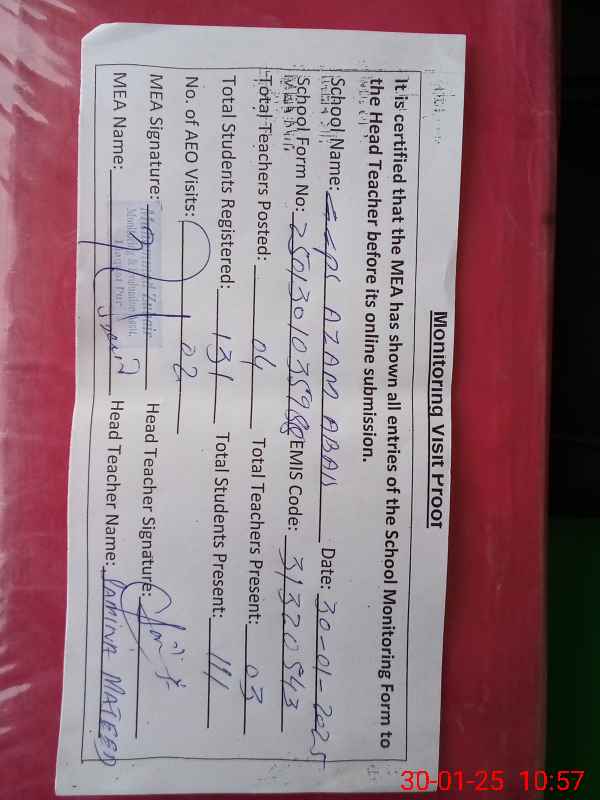 Monitoring Visit Proof
It is certified that the MEA has shown all entries of the School Monitoring Form to
the Head Teacher before its online submission.
School Name: GGPS AZAM ABAD Date: 30-01-2025
School Form No: EMIS Code: 31320543
Total Teachers Posted: 04 Total Teachers Present: 03
Total Students Registered: 131 Total Students Present: 111
No. of AEO Visits: 02
MEA Signature: Head Teacher Signature:
MEA Name: Head Teacher Name: MATEED
Monitoring & Evaluation
Liaquat Pur
30-01-25 10:57